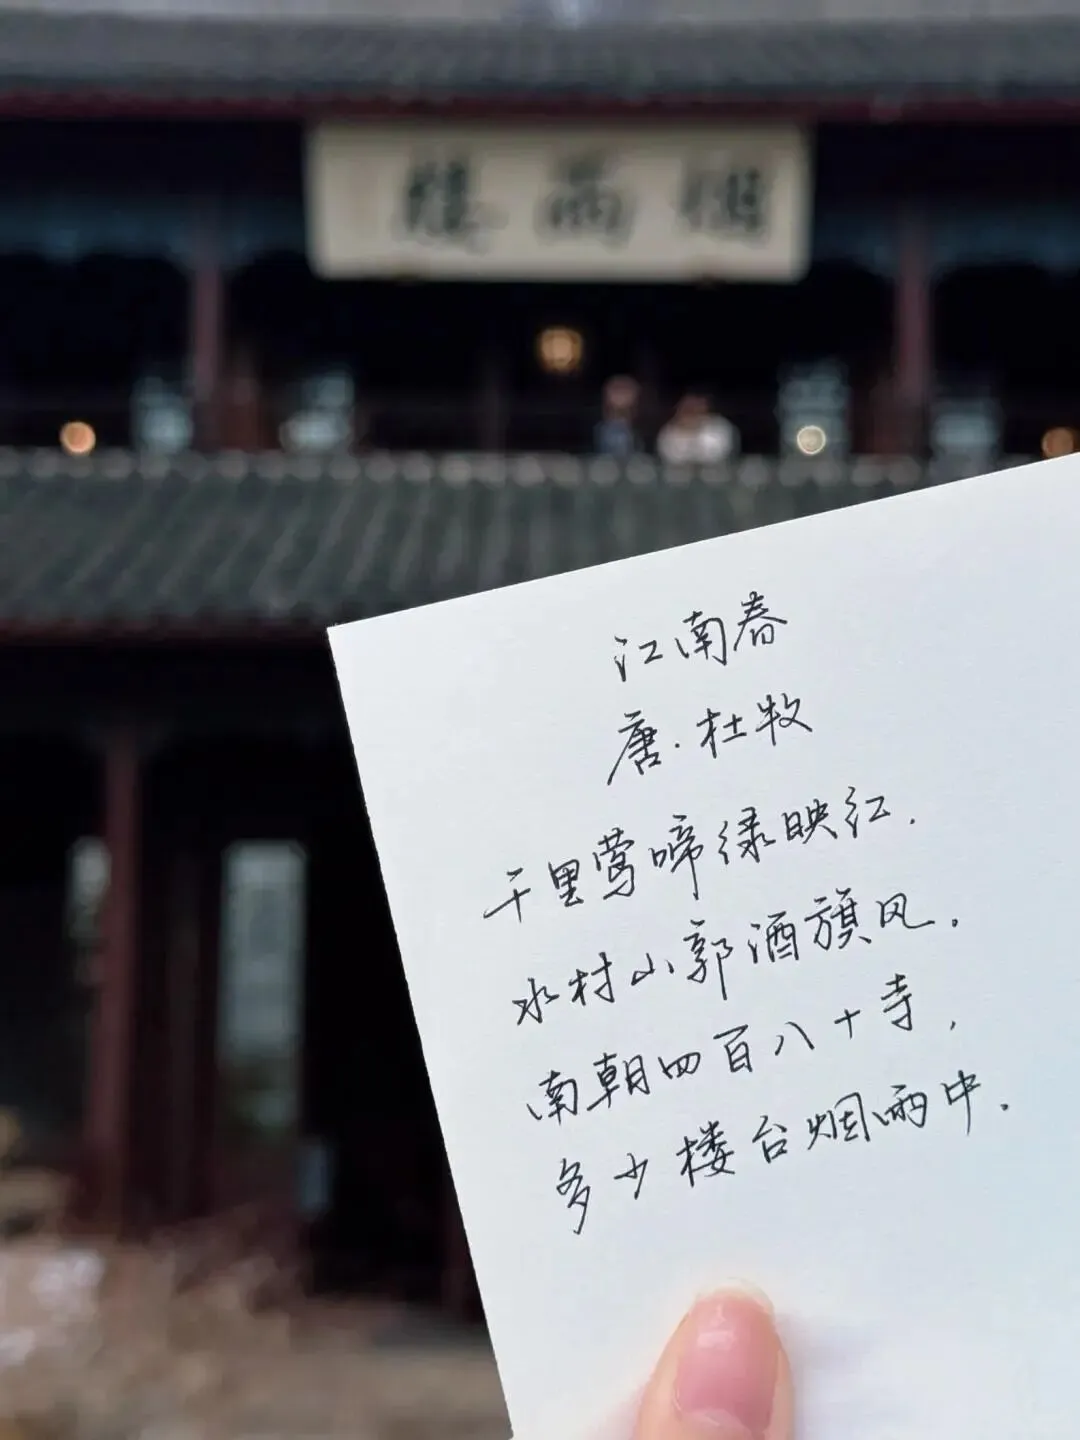 烟雨楼
江南春
唐·杜牧
千里莺啼绿映红.
水村山郭酒旗风.
南朝四百八十寺,
多少楼台烟雨中.